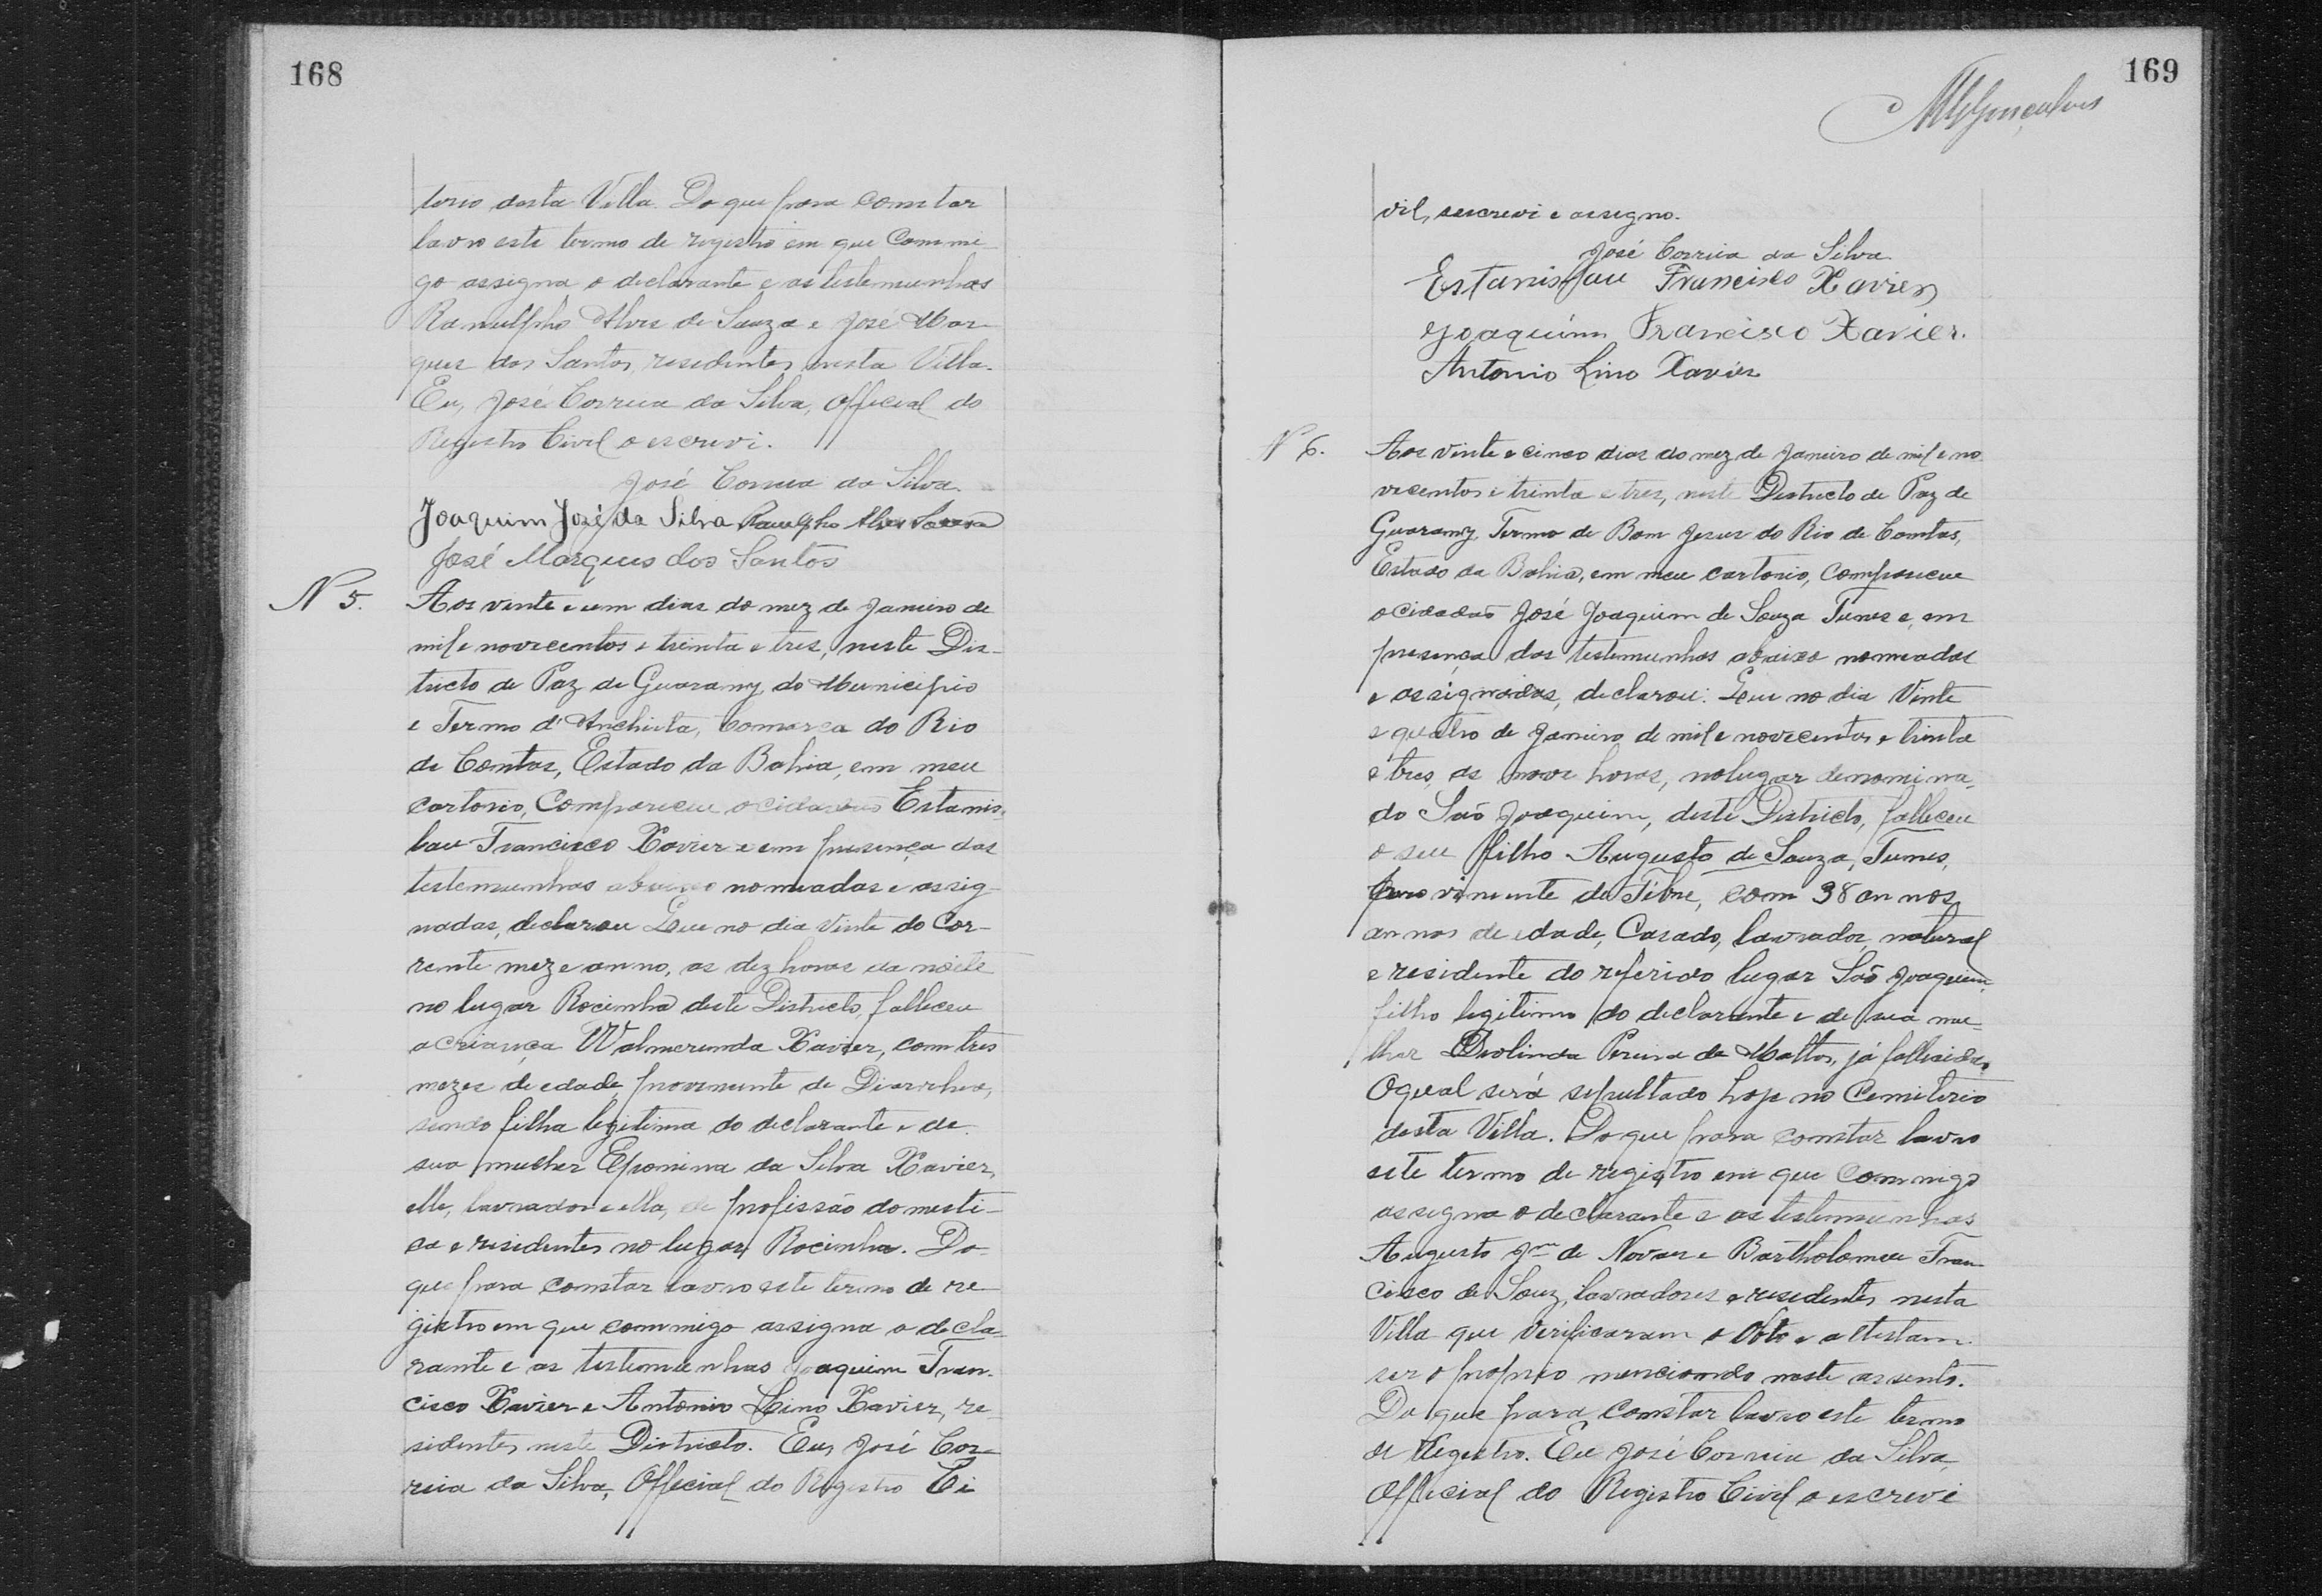 168
terio desta Villa. Do que para constar
lavro este termo de registro em que commi-
go assigna o declarante e as testemunhas
Ranulpho Alves de Souza e José Mar-
ques dos Santos, residentes nesta Villa.
Eu, José Correia da Silva, Official do
Registro Civil o escrevi.
José Correia da Silva.
Joaquim José da Silva Ranulpho Alves Souza
José Marques dos Santos
N 5.
Aos vinte e um dias do mez de Janeiro de
mil e novecentos e trinta e tres, neste Dis-
tricto de Paz de Guarany, do Municipio
e Termo d'Anchieta, Comarca do Rio
de Contas, Estado da Bahia, em meu
cartorio, Compareceu o cidadão Estanis-
lau Francisco Xavier e em presença das
testemunhas abaixo nomeadas e assig-
nadas, declarou Que no dia Vinte do Cor-
rente mez e anno, as dez horas da noite
no lugar Rocinha deste Districto, falleceu
a criança Walmerinda Xavier, com tres
mezes de edade, proveniente de Diarrhea,
sendo filha legitima do declarante e de
sua mulher Epomina da Silva Xavier,
elle, lavrador e ella, de profissão domesti-
ca e residentes no lugar Rocinha. Do
que para constar lavro este termo de re-
gistro em que commigo assigna o decla-
rante e as testemunhas Joaquim Fran-
cisco Xavier e Antonio Lino Xavier, re-
sidentes neste Districto. Eu, José Cor-
reia da Silva, Official do Registro Ci
169
MGGonçalves
vil, escrevi e assigno.
José Correia da Silva
Estanislau Francisco Xavier
Joaquim Francisco Xavier.
Antonio Lino Xavier
N 6.
Aos vinte e cinco dias do mez de Janeiro de mil e no-
vecentos e trinta e tres, neste Districto de Paz de
Guarany, Termo de Bom Jesus do Rio de Contas,
Estado da Bahia, em meu cartorio, Compareceu
o cidadão José Joaquim de Souza Tunes e, em
presença das testemunhas abaixo nomeadas
e assignadas, declarou: Que no dia Vinte
e quatro de Janeiro de mil e novecentos e trinta
e tres, as nove horas, no lugar denomina-
do São Joaquim, deste Districto, falleceu
o seu filho Augusto de Souza Tunes,
proviniente de Febre, com 38 annos
annos de edade, Casado, lavrador, natural
e residente do referido lugar São Joaquim,
filho legitimo do declarante e de sua mu-
lher Deolinda Pereira de Mattos, já fallecida.
O qual será sepultado hoje no Cemiterio
desta Villa. Do que para constar lavro
este termo de registro em que Commigo
assigna o declarante e as testemunhas
Augusto Jm de Novaes e Bartholomeu Fran-
cisco de Souz, lavradores e residentes nesta
Villa que Verificaram o Obto e attestam
ser o proprio mencionado neste assento.
Do que para constar lavro este termo
de Registro. Eu José Correia da Silva,
Official do Registro Civil o escrevi